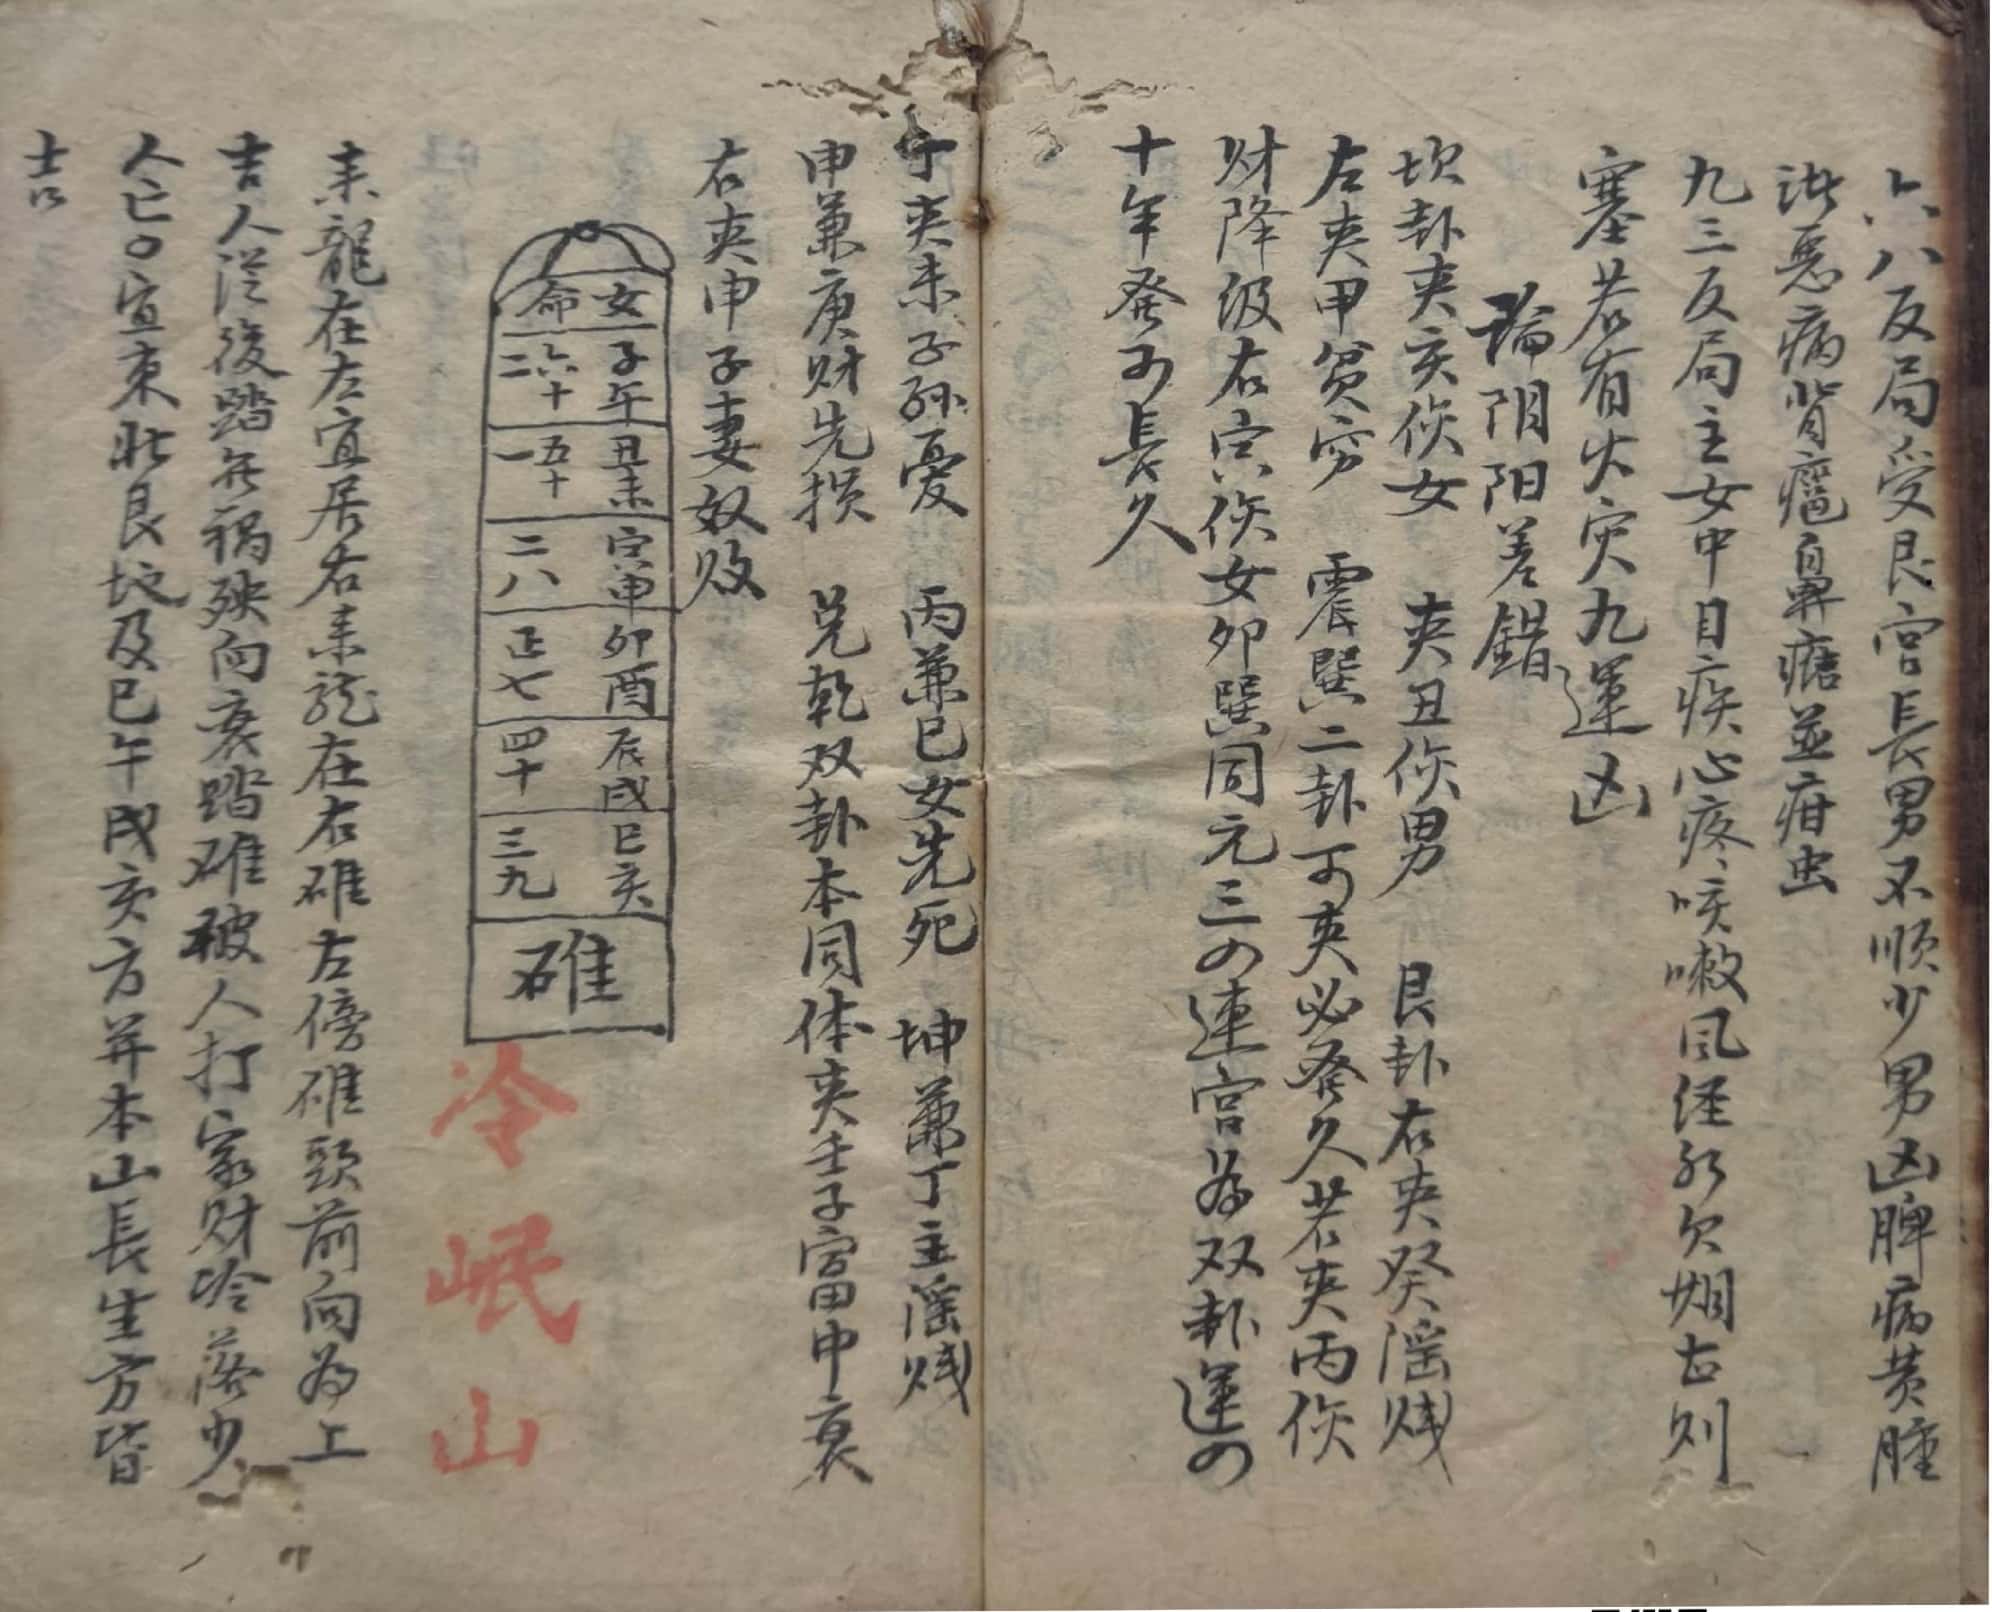 六八反局受艮宫長男不顺少男凶脾病黄腫
惡病背瘟鼻瘡並疳虫
九三反局主女中目疾心疼咳嗽風经欠烟古则
塞若有火灾九運凶
論阴阳差錯
坎卦夾亥傷女 夾丑傷男 艮卦右夾癸淫贱
左夾甲貧穷 震巽二卦可夾必發久若夾丙傷
财降级右寅傷女卯巽同元三の連宫為双卦運の
十年發可長久
丁夾未子孫憂 丙兼巳女先死 坤兼丁主淫贱
申兼庚财先損 兑乾双卦本同体夾壬子富中衰
右夾申子妻奴败
女命
子午 六十二
丑未 五十一
寅申 二八
卯酉 正七
辰戌 四十
巳亥 三九
碓
冷岷山
来龍在左宜居右来龙在右碓左傍碓頭前向為上
吉人從後踏無禍殃向裏踏碓被人打家财冷落少
人亡○宜東北艮坟及巳午戌亥方并本山長生方皆
吉